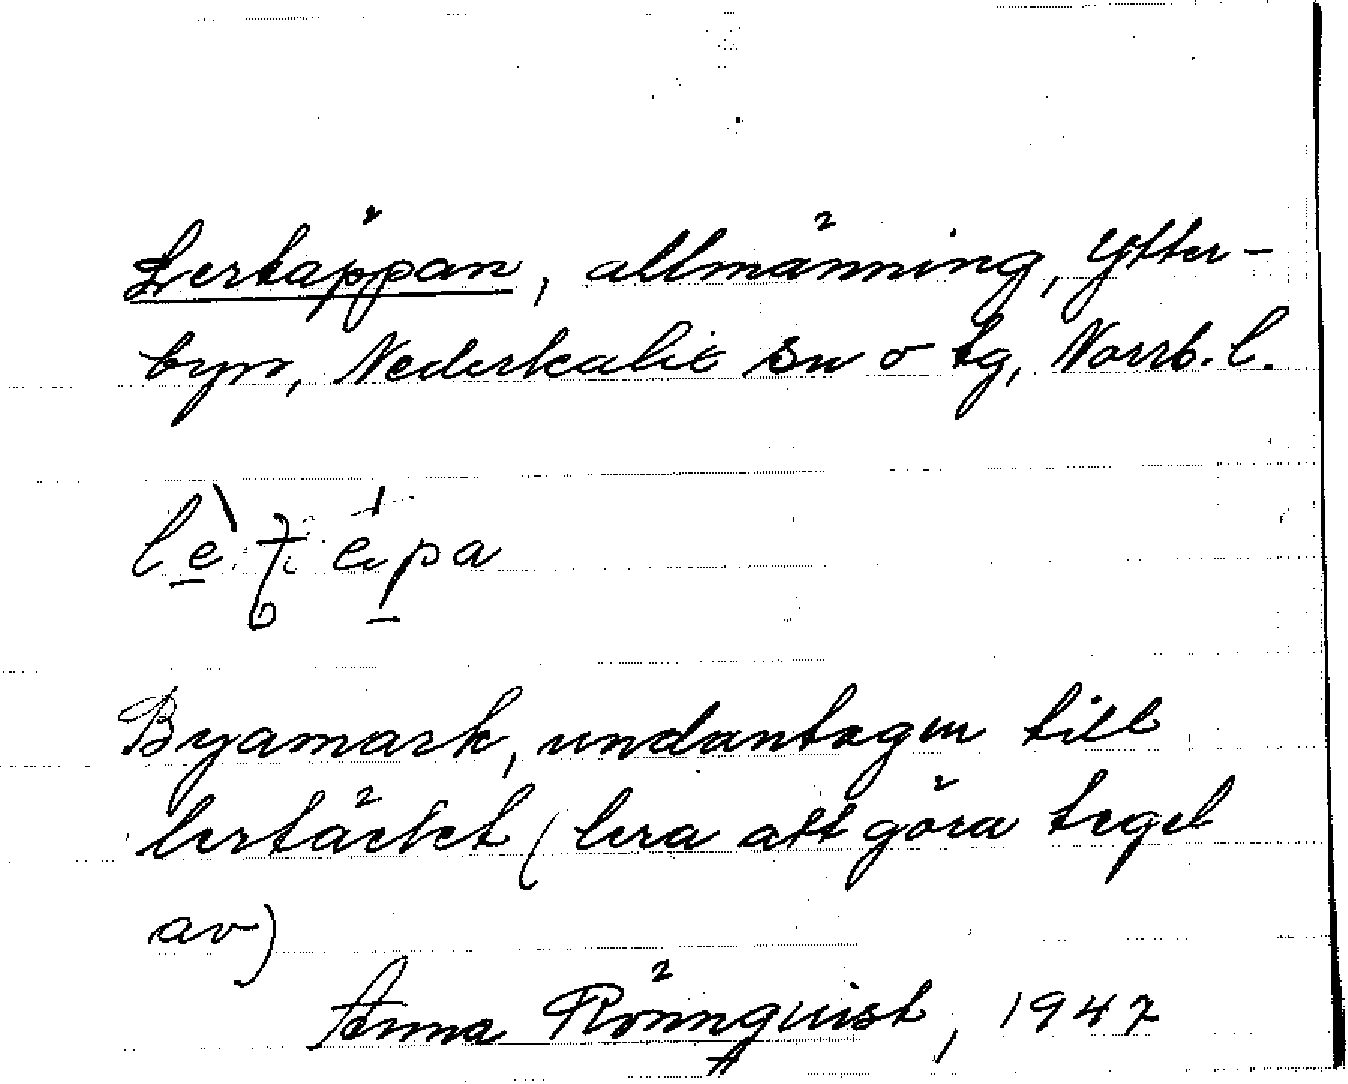 Lertäppan, allmänning, Ytter-
byn, Nederkalix sn o tg, Norrb. l.
Byamark, undantagen till
lertäcket (lera att göra tegel
av)
Anna Rönnquist, 1947